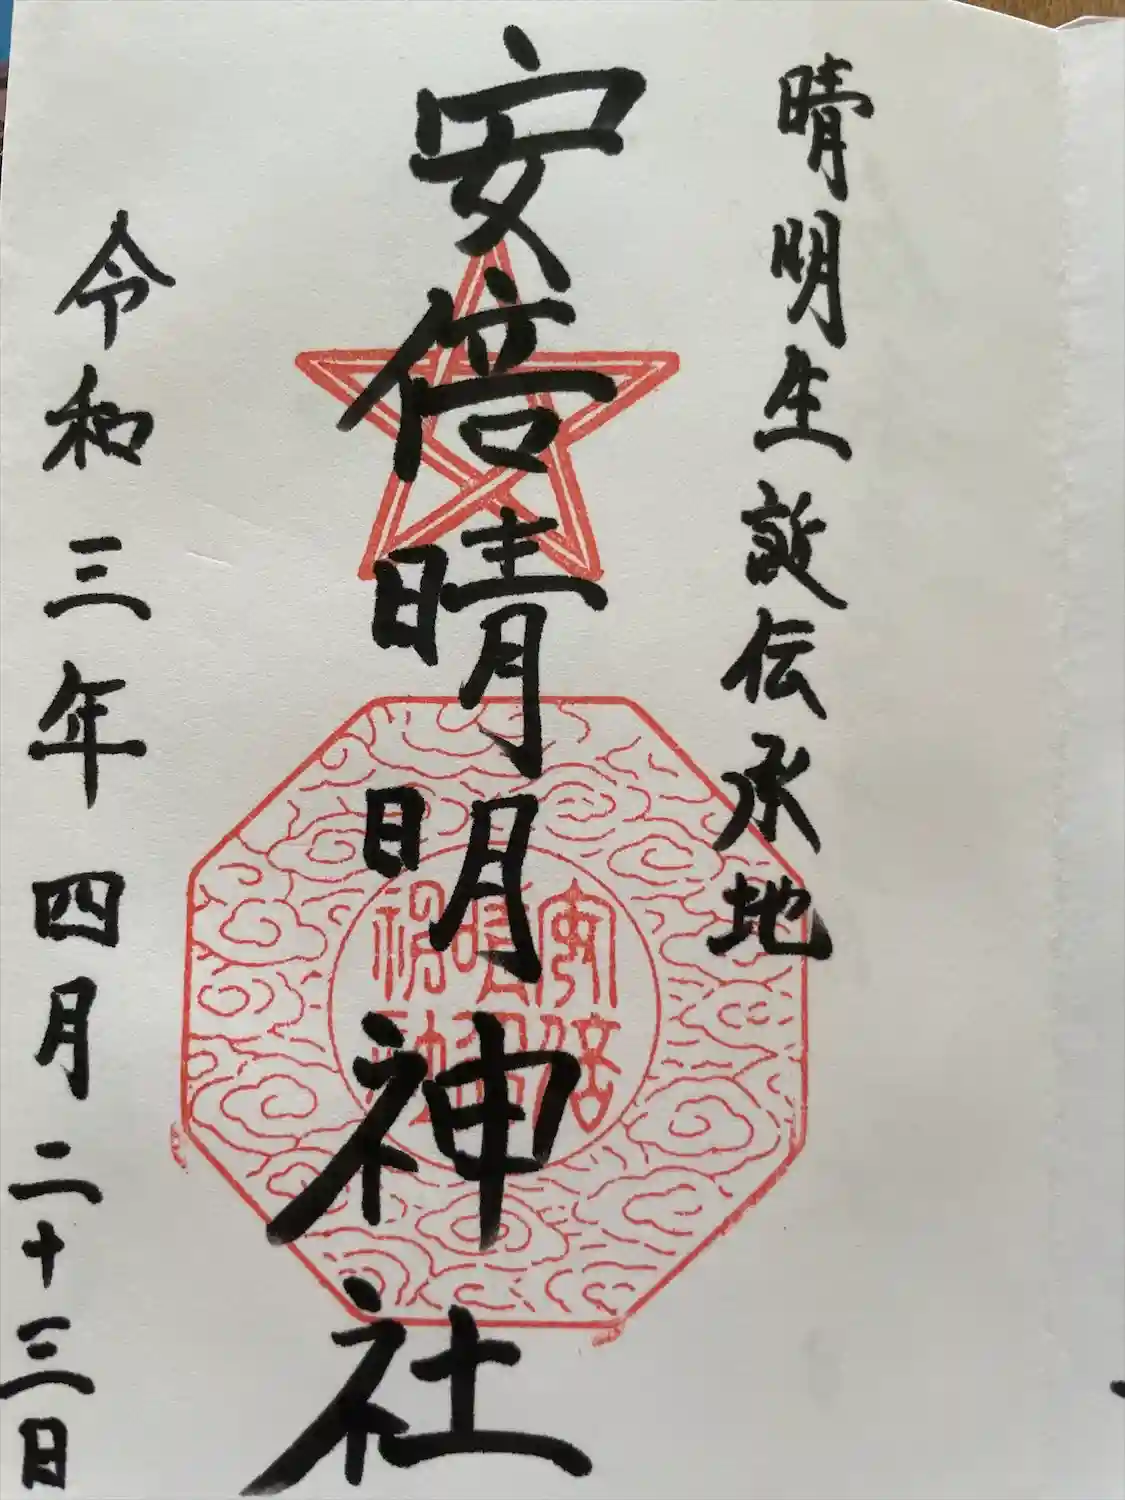 晴明生誕伝承地
安倍晴明神社
令和三年四月二十三日
安倍
晴明